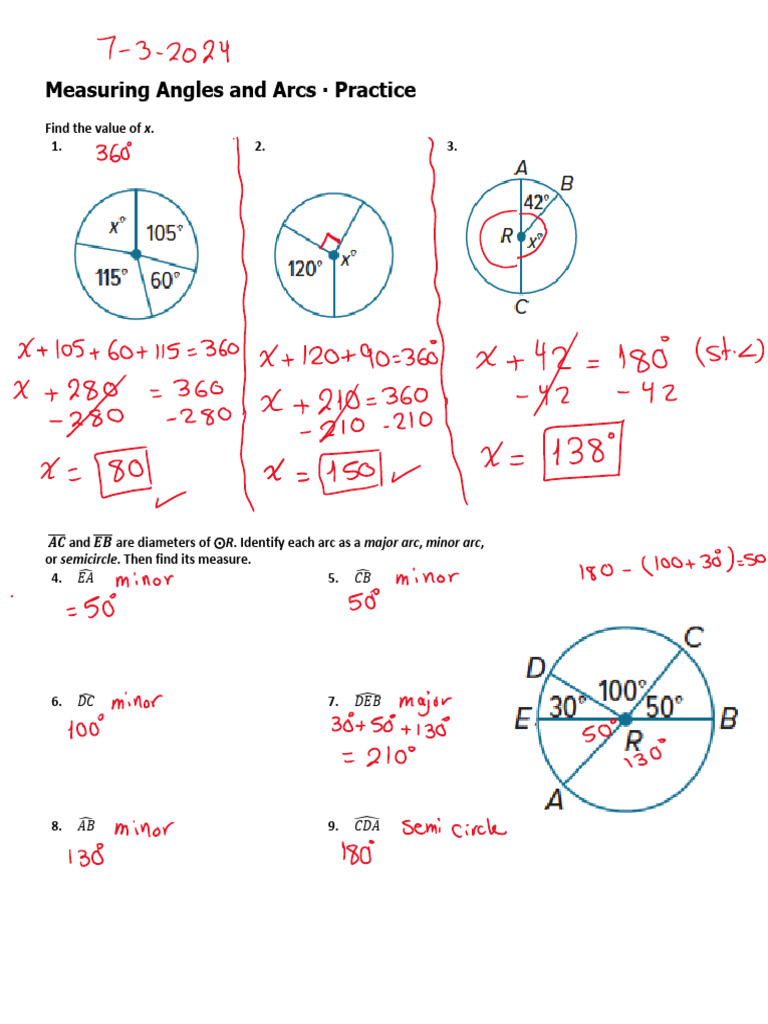 7-3-2024
Measuring Angles and Arcs · Practice
Find the value of x.
1. 360°
x° 105°
115° 60°
x+105+60+115=360
x + 280 = 360
-280 -280
x = 80
2.
120° x°
x+120+90=360°
x + 210 = 360
-210 -210
x = 150
3.
A
B
42°
R x°
C
x + 42 = 180° (st.<)
-42 -42
x = 138°
AC and EB are diameters of ⊙R. Identify each arc as a major arc, minor arc,
or semicircle. Then find its measure.
180 - (100+30°)=50
4. EA minor
= 50°
5. CB minor
50°
6. DC minor
100°
7. DEB major
30°+50°+130°
= 210°
8. AB minor
130°
9. CDA Semi Circle
180°
C
D
100°
E 30° 50° B
50° R
130°
A